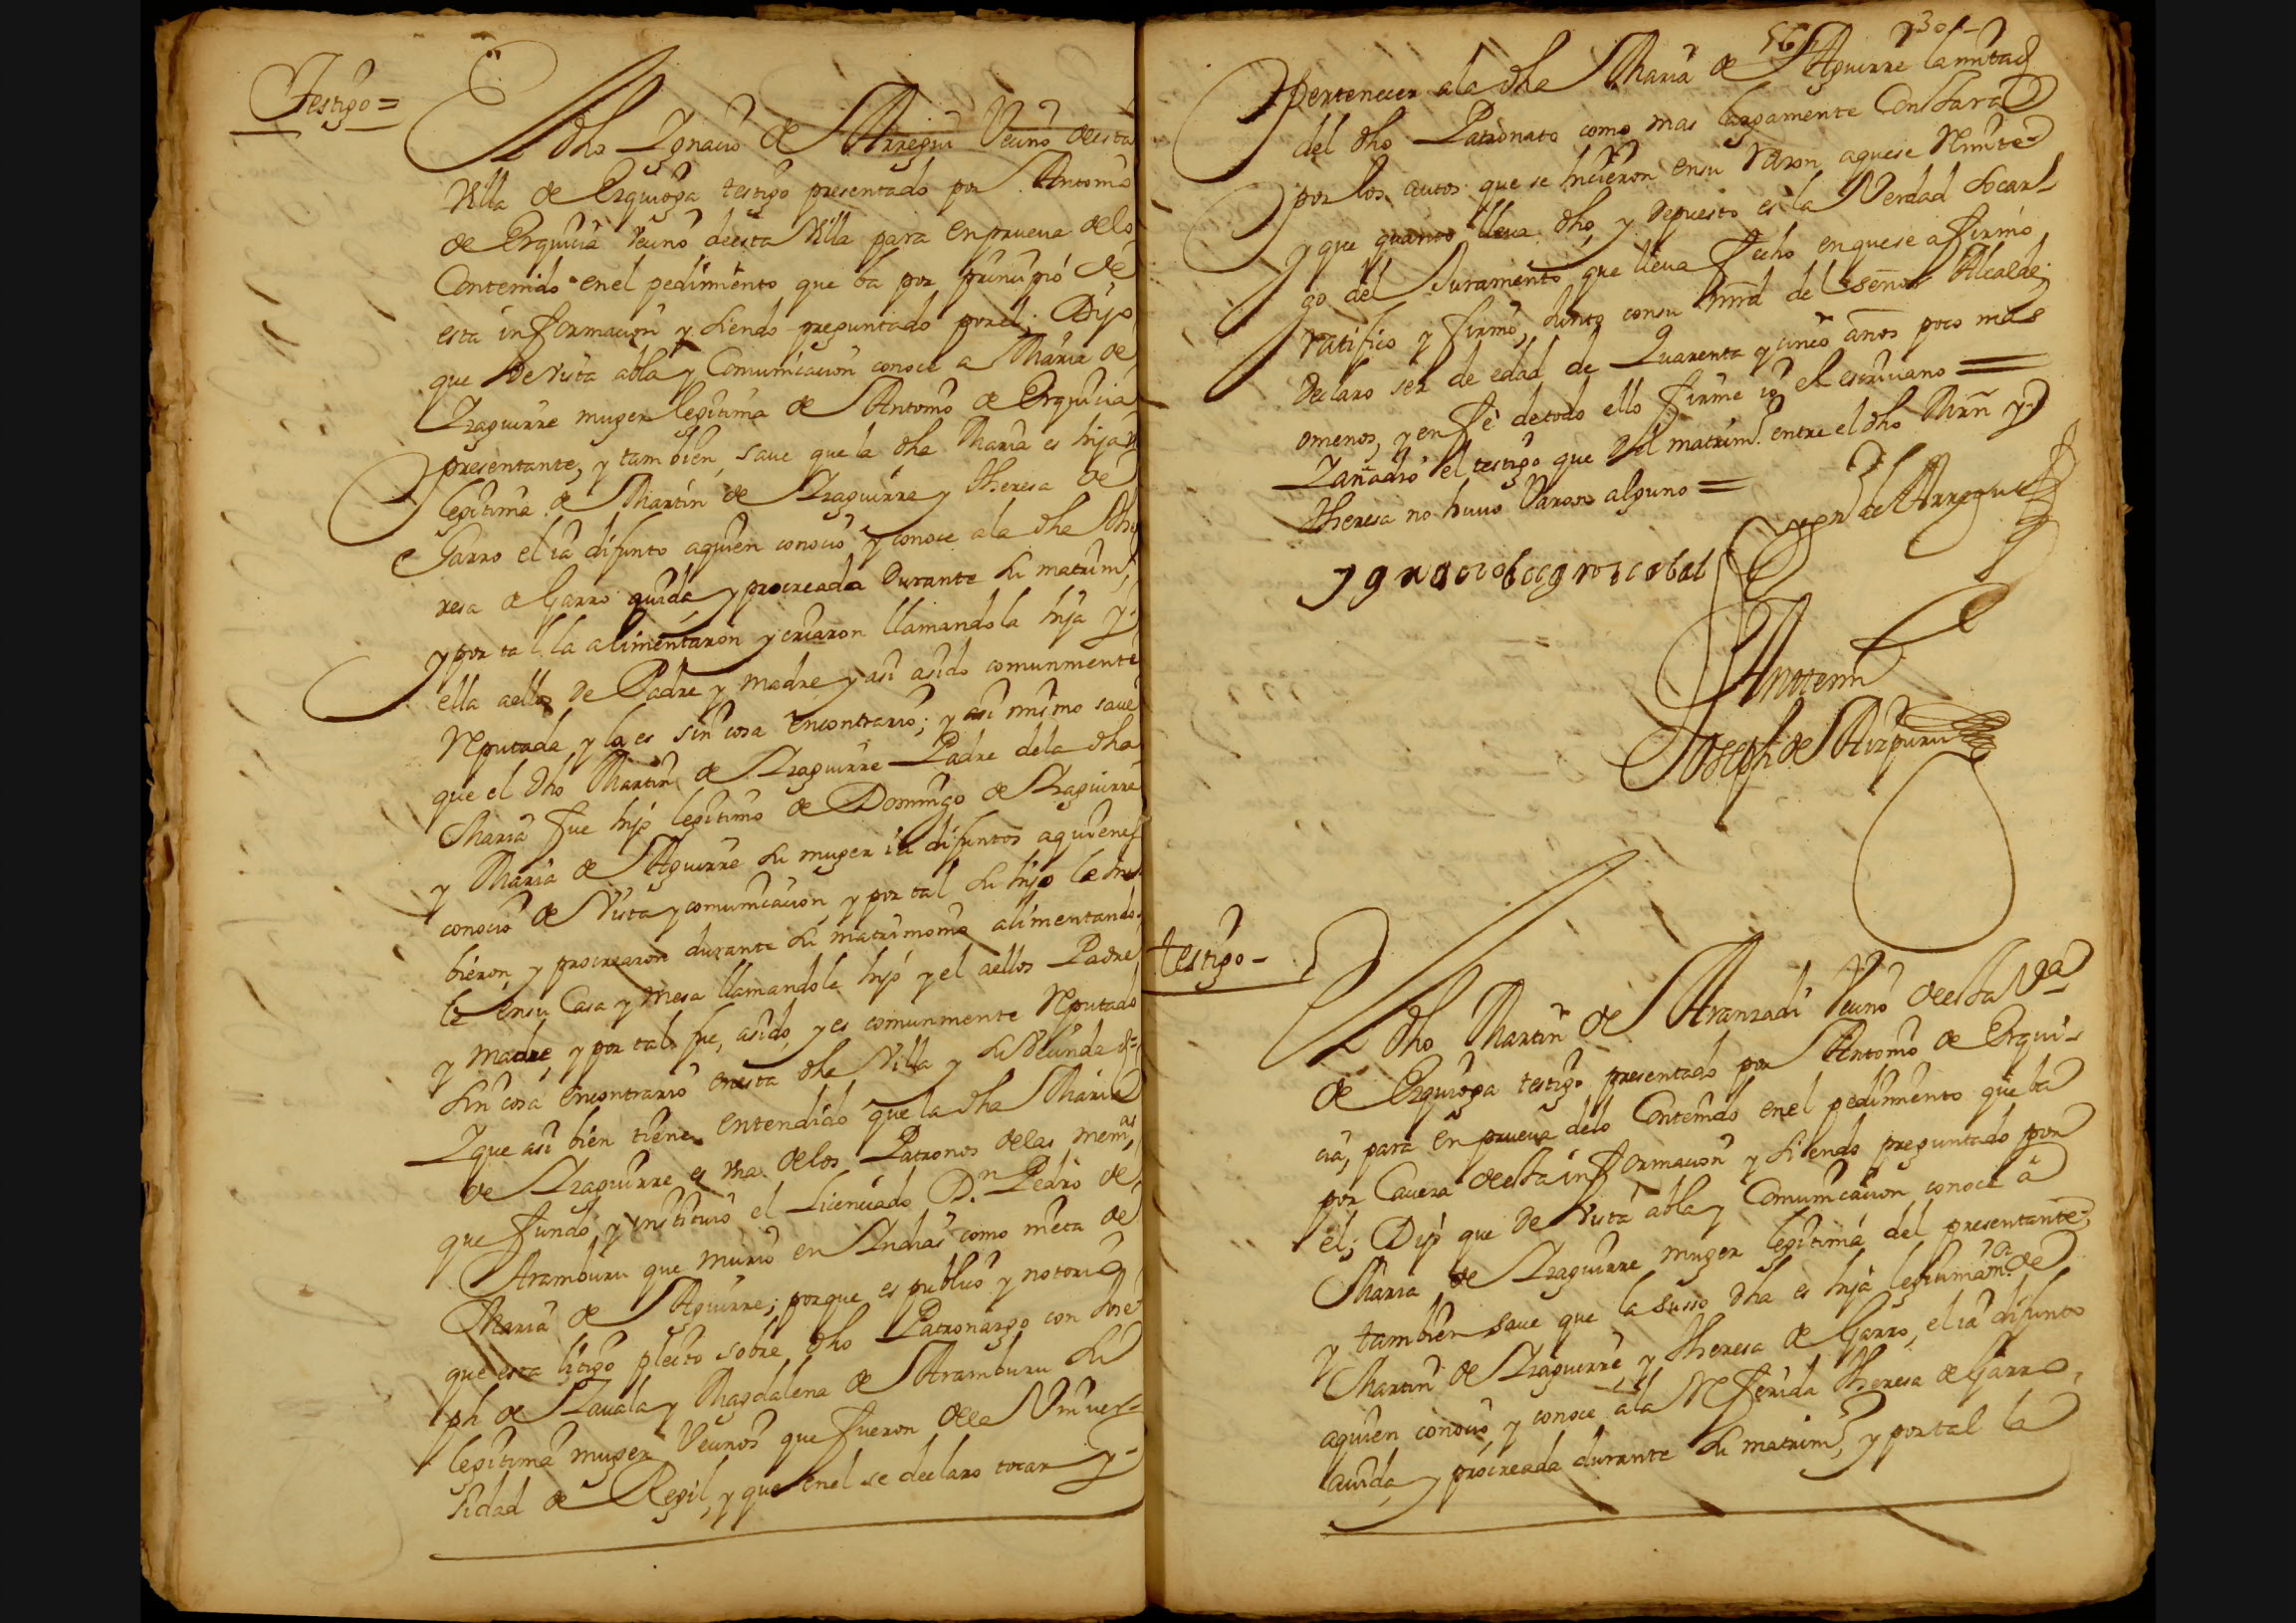 Testigo =
El dho Ygnacio de Arregui Vecino deesta
Villa de Ezquioga testigo presentado por Antonio
de Ezquicia Vecino deesta Villa para enprueua delo
Contenido enel pedimiento que ba por prinçipio de
esta informaçion y siendo preguntado porel; Dijo
que De Vista abla y Comunicaçion conoce a Maria de
Yzaguirre muger legitima de Antonio de Ezquicia
presentante, y tambien saue que la dha Maria es hija
legitima de Martin de Yzaguirre y Theresa de
Garro el ia difunto aquien conoçio y conoce ala dha The
resa de Garro auida y procreada Durante su matrim.o
y por tal la alimentaron y criaron llamandola hija y
ella aellos De Padre y madre y asi asido comunmente
Reputada y la es sin cosa encontrario; y asi mismo saue
que el dho Martin de Yzaguirre Padre dela dha
Maria fue hijo legitimo de Domingo de Yzaguirre
y Maria de Aguirre su muger ia difuntos aquienes
conoçio de Vista y comunicaçion y por tal su hijo le hu
bieron y procrearon durante su matrimonio alimentando
le ensu Casa y mesa llamandole hijo y el aellos Padre
y madre y por tal fue, asido, y es comunmente Reputado
sin cosa encontrario enesta dha Villa y su Vecindad =
Yque asi bien tiene entendido que la dha Maria
de Yzaguirre es Vna delos Patronos delas mem.as
que fundo y instituio el Licenciado D.n Pedro de
Aramburu que murio en Indias como nieta de
Maria de Aguirre; porque es publico y notorio
que esta litigo pleito sobre dho Patronazgo con Jose
ph de Zauala y Magdalena de Aramburu su
legitima muger Vecinos que fueron dela Vniuer=
sidad de Regil, y que enel se declaro tocar y
561 730
pertenecer ala dha Maria de Aguirre la mitad
del dho Patronato como mas largamente Constara
por los autos que se hiçieron ensu razon aquese Remite
y que quanto lleua dho, y depuesto es la Verdad socar
go del Juramento que lleua fecho enquese afirmo
ratifico y firmo, Junto consu mrd del señor Alcalde
Declaro ser de edad de Quarenta y cinco años poco mas
omenos, y en fe detodo ello firme io el escriuano =
Yañadio el testigo que del matrim.o entre el dho Mrn y
Theresa no huuo Varon alguno =
de Arregui
Antemi
Joseph de Aizpuru
testigo -
El dho Martin de Aranzadi Vecino deesta V.a
de Ezquioga testigo presentado por Antonio de Ezqui-
cia, para en prueua delo Contenido enel pedimiento que ba
por Caueza deesta informaçion y siendo preguntado por
el; Dijo que De Vista abla y Comunicaçion conoce a
Maria de Yzaguirre muger legitima del presentante,
y tambien saue que la susso dha es hija legitimam.te de
Martin de Yzaguirre, y Theresa de Garro, el ia difunto
aquien conoçio, y conoce ala Referida Theresa de Garro,
auida y procreada durante su matrim.o y portal la